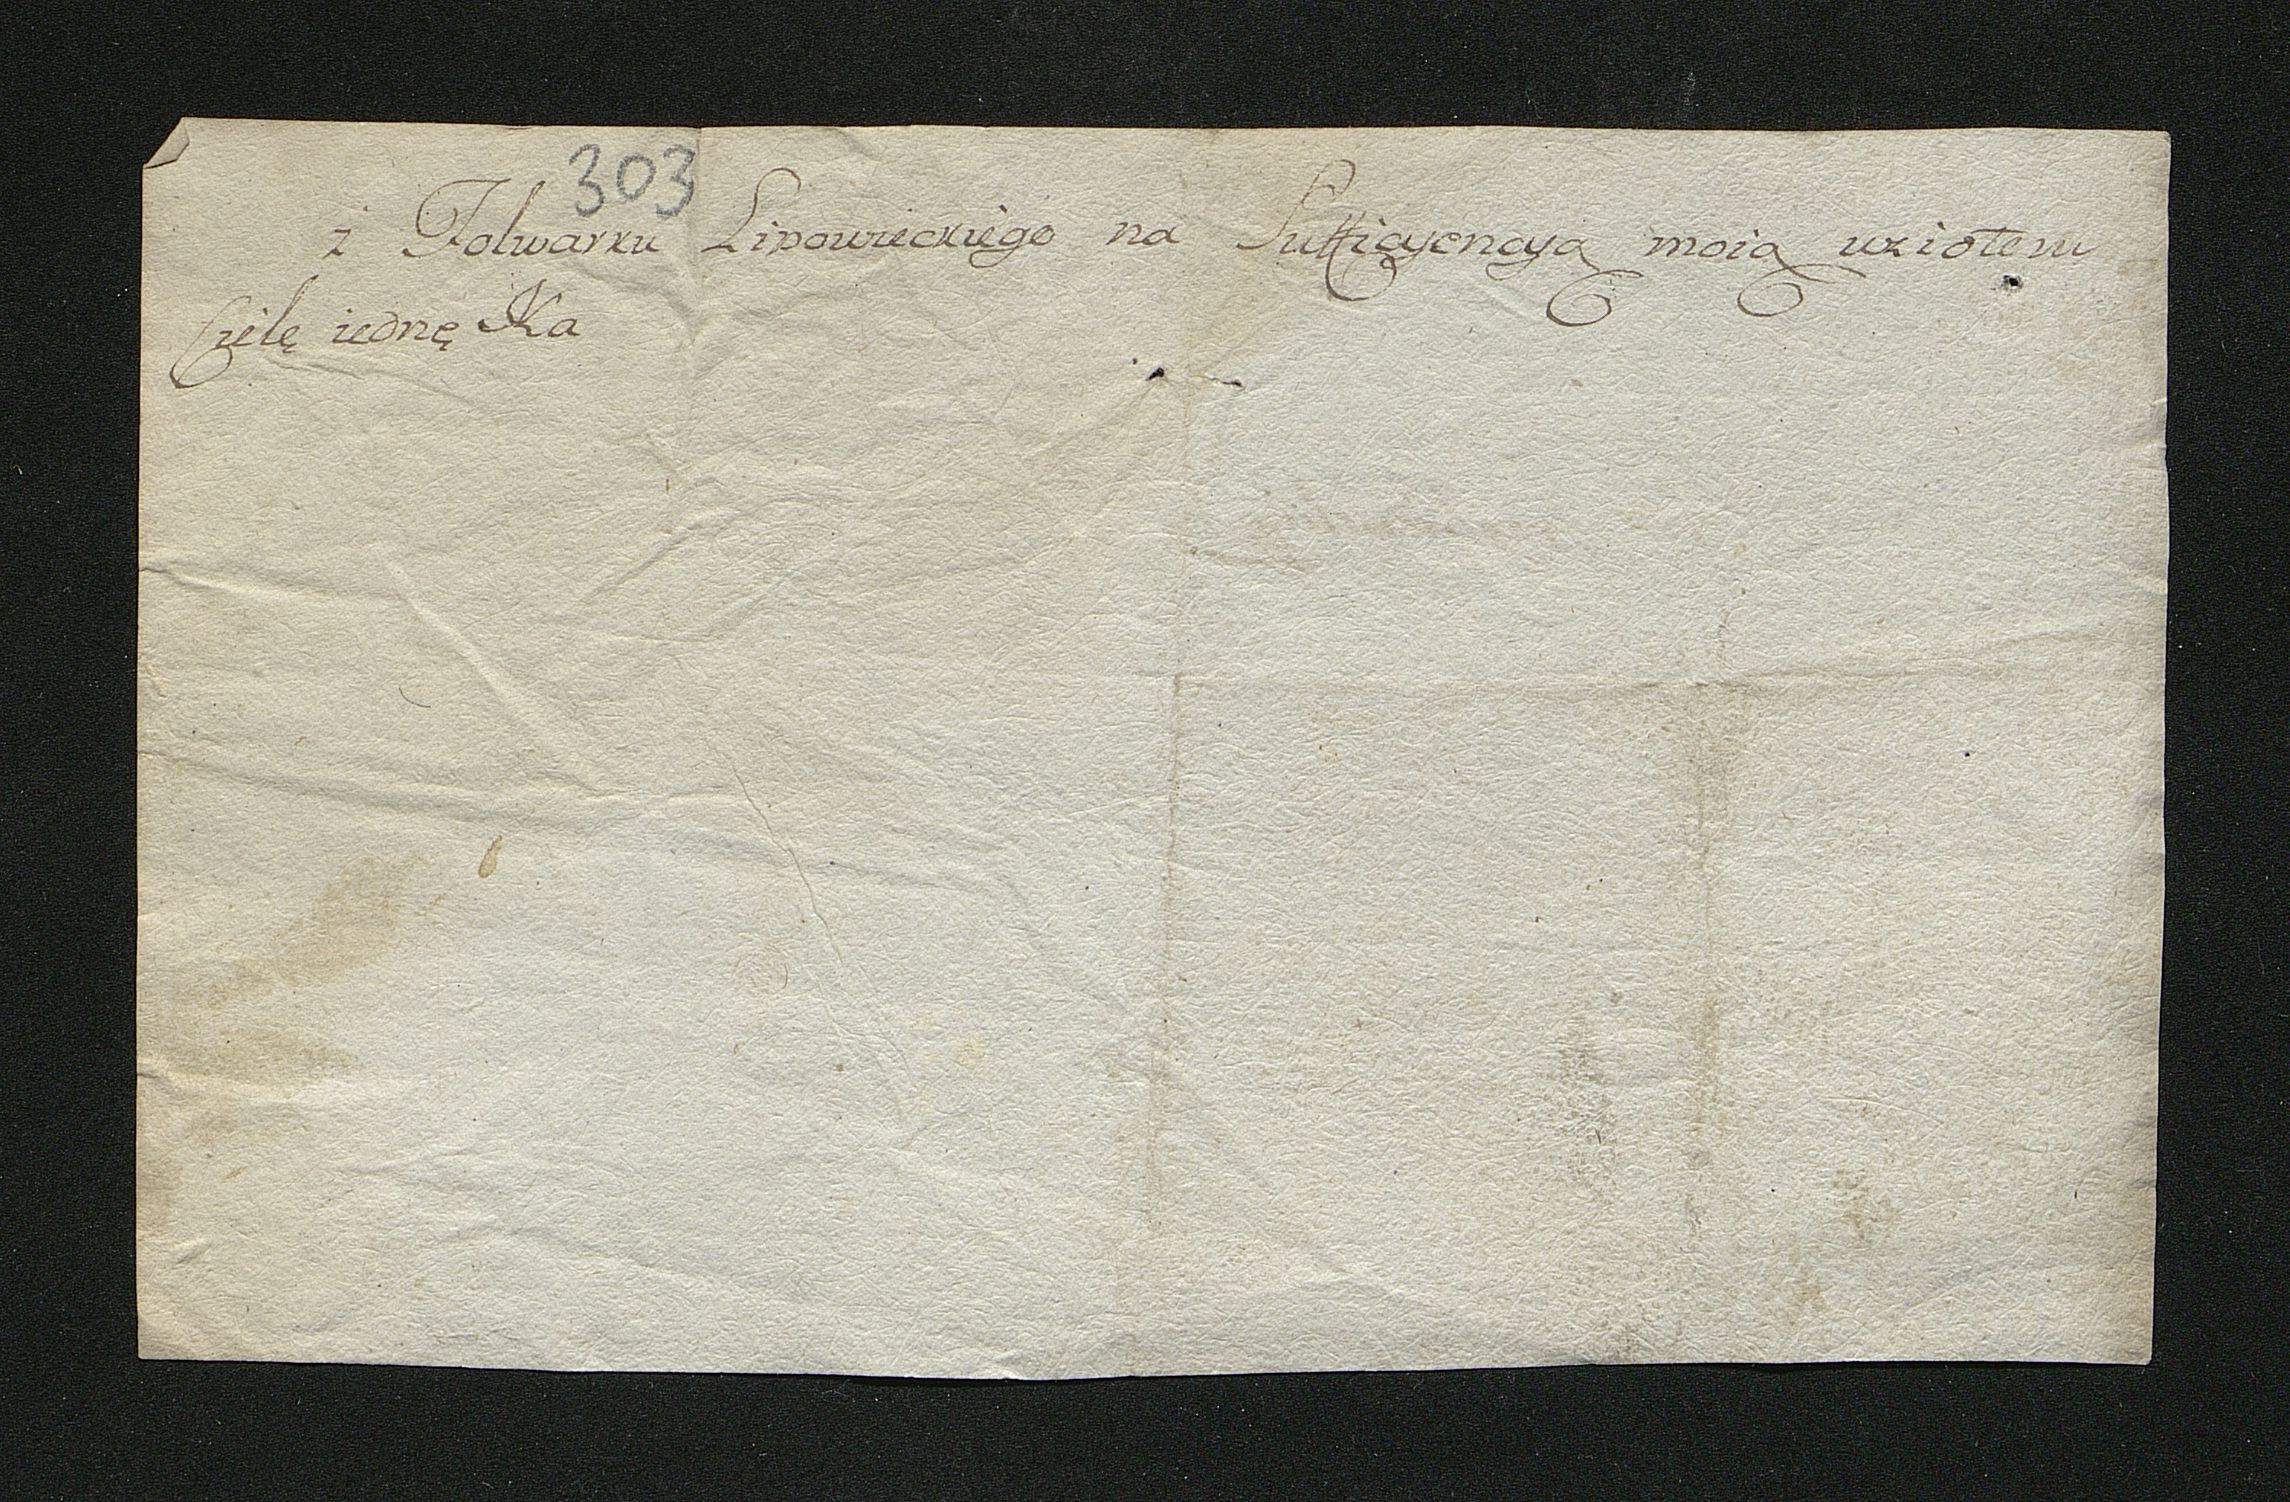 303
z Folwarku Lipowieckiego na Suffi<wbr>cyencyą moią wziołem
Cielę iednę Ka